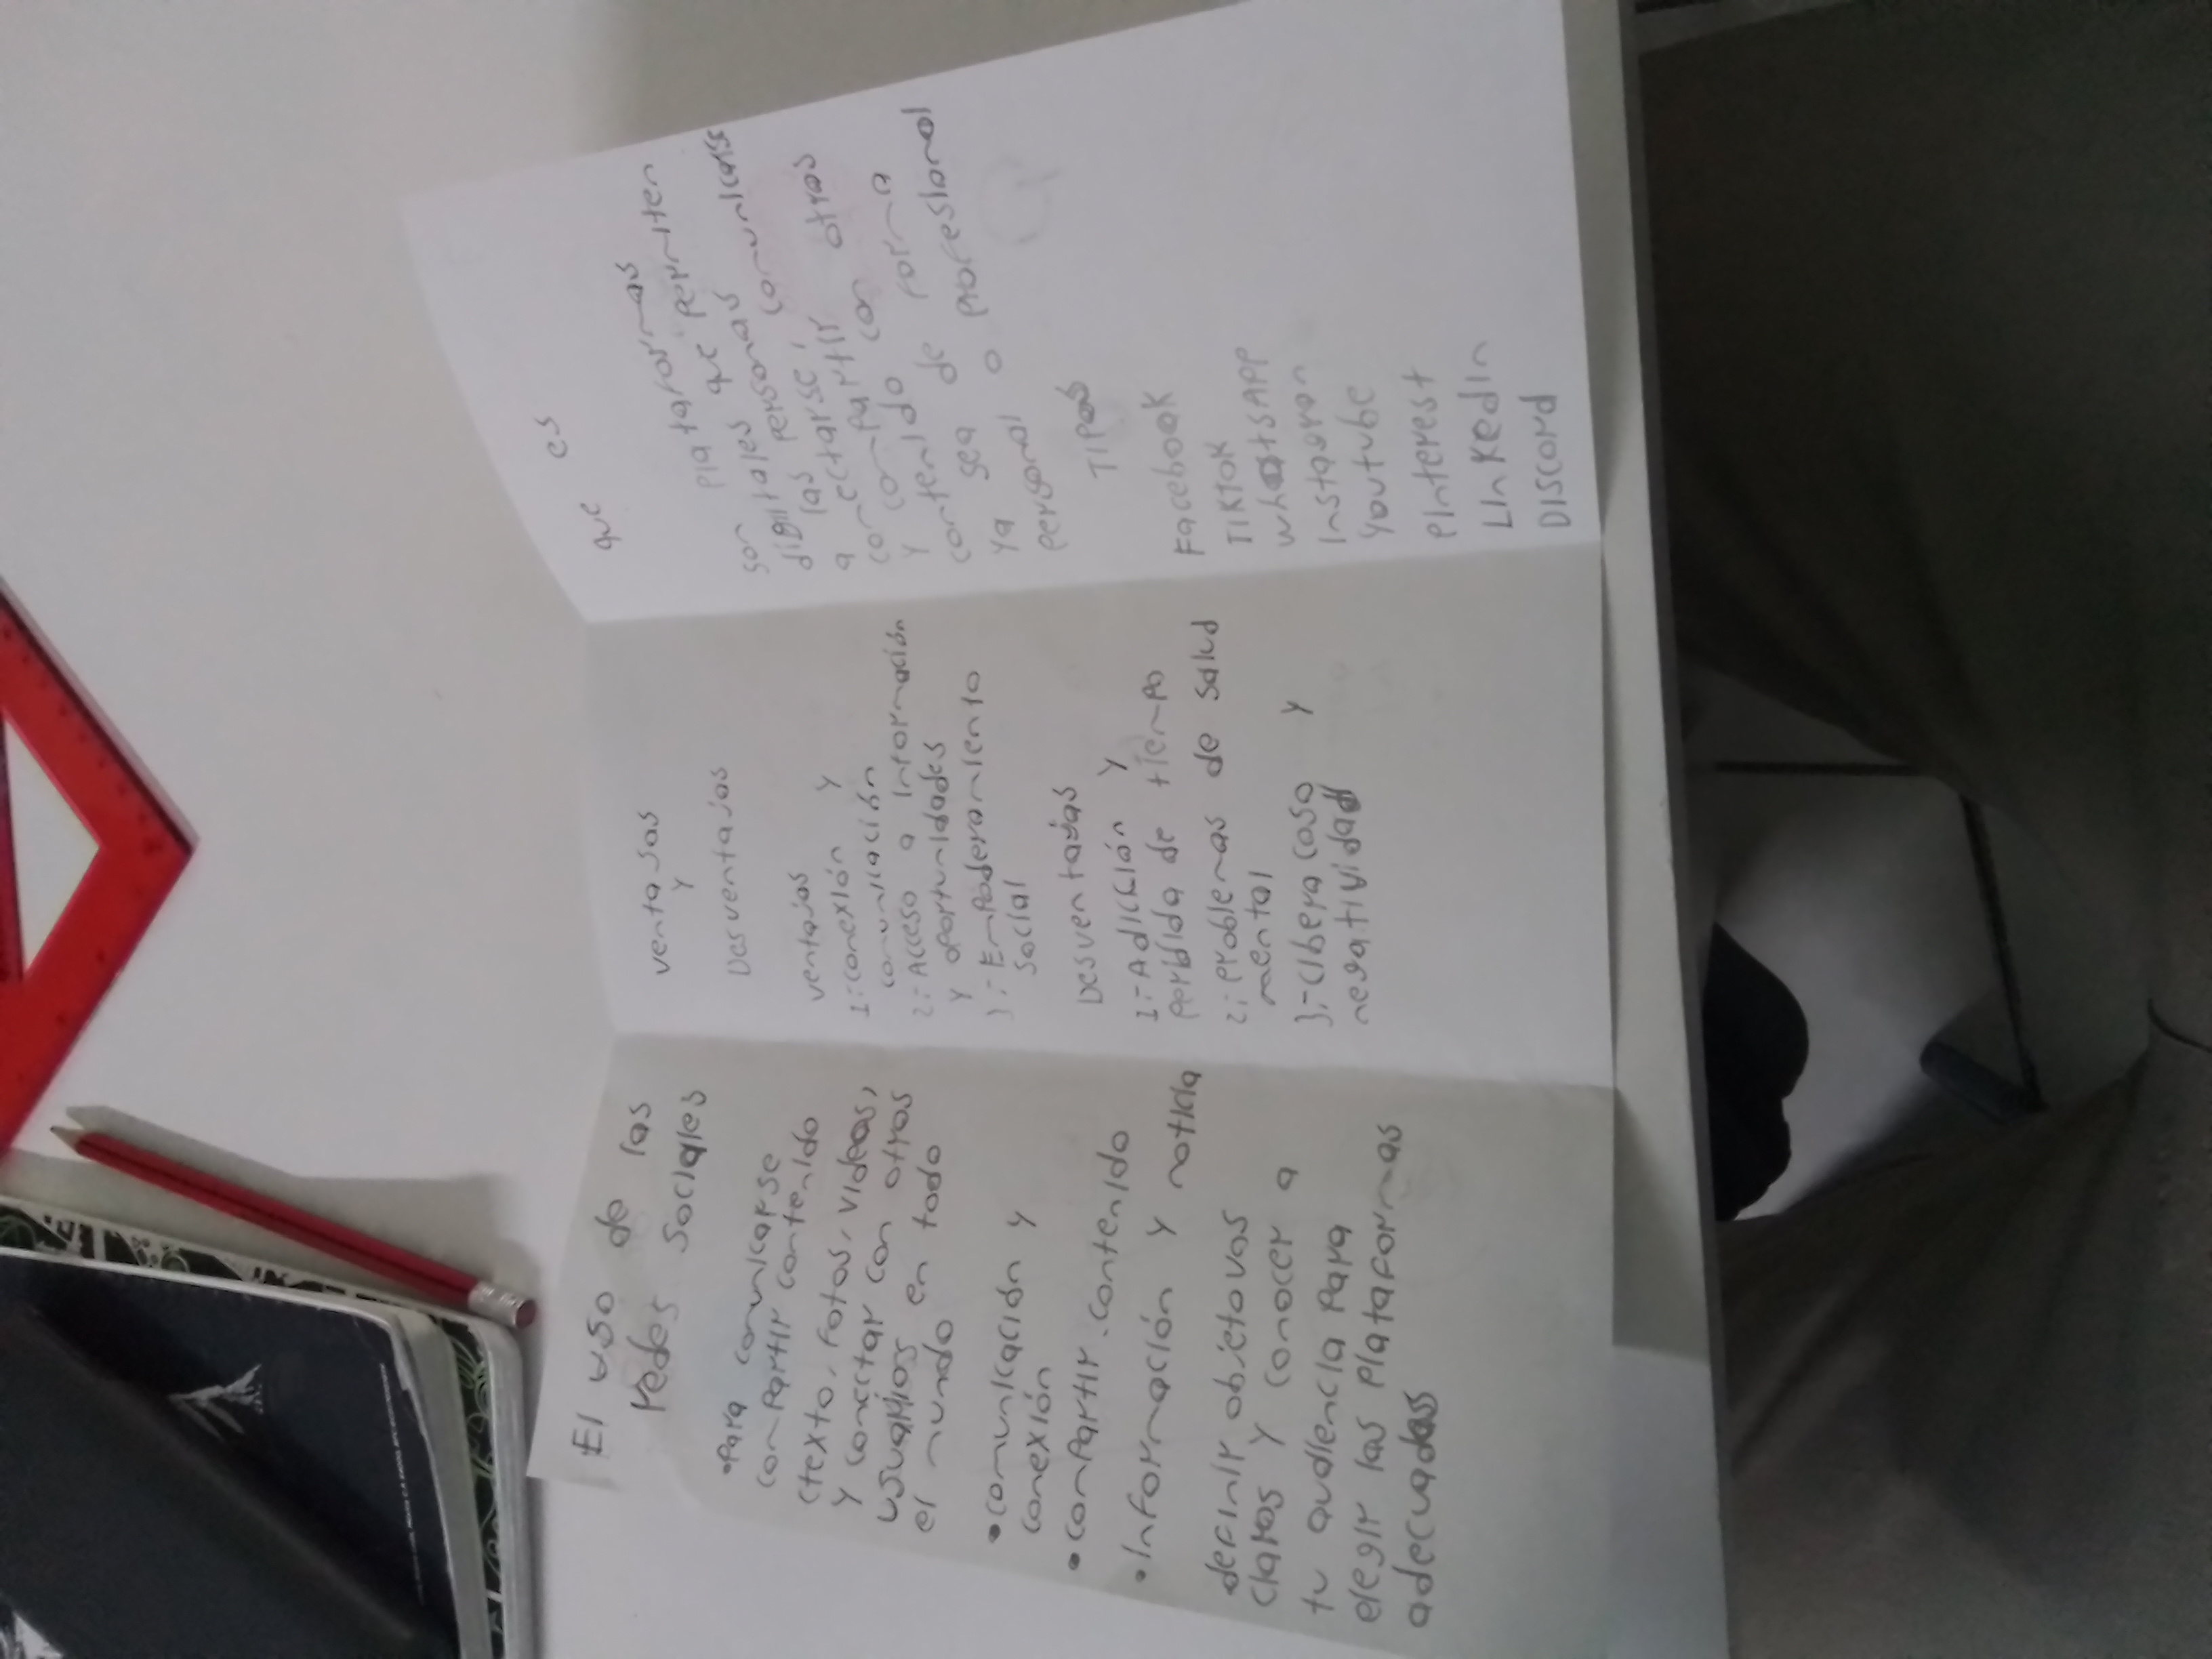 El uso de las
redes sociales
•Para comunicarse
compartir contenido
(texto, fotos, videos,
y conectar con otros
usuarios en todo
el mundo
•comunicación y
conexión
•compartir contenido
•Información y noticia
definir objetivos
claros y conocer a
tu audiencia para
elegir las plataformas
adecuadas
ventajas
y
Desventajas
ventajas
1:-conexión y
comunicación
2:-Acceso a información
y oportunidades
3:-Empoderamiento
social
Desventajas
1:-Adicción y
perdida de tiempo
2:problemas de salud
mental
3:-ciberacoso y
negatividad
que es
son plataformas
digitales que permiten
a las personas comunicarse
conectarse,
y compartir
contenido con otros
ya sea de forma
personal o profesional
Tipos
Facebook
TIKTOK
WhatsAPP
Instagram
Youtube
Pinterest
LinKedIn
DIscord